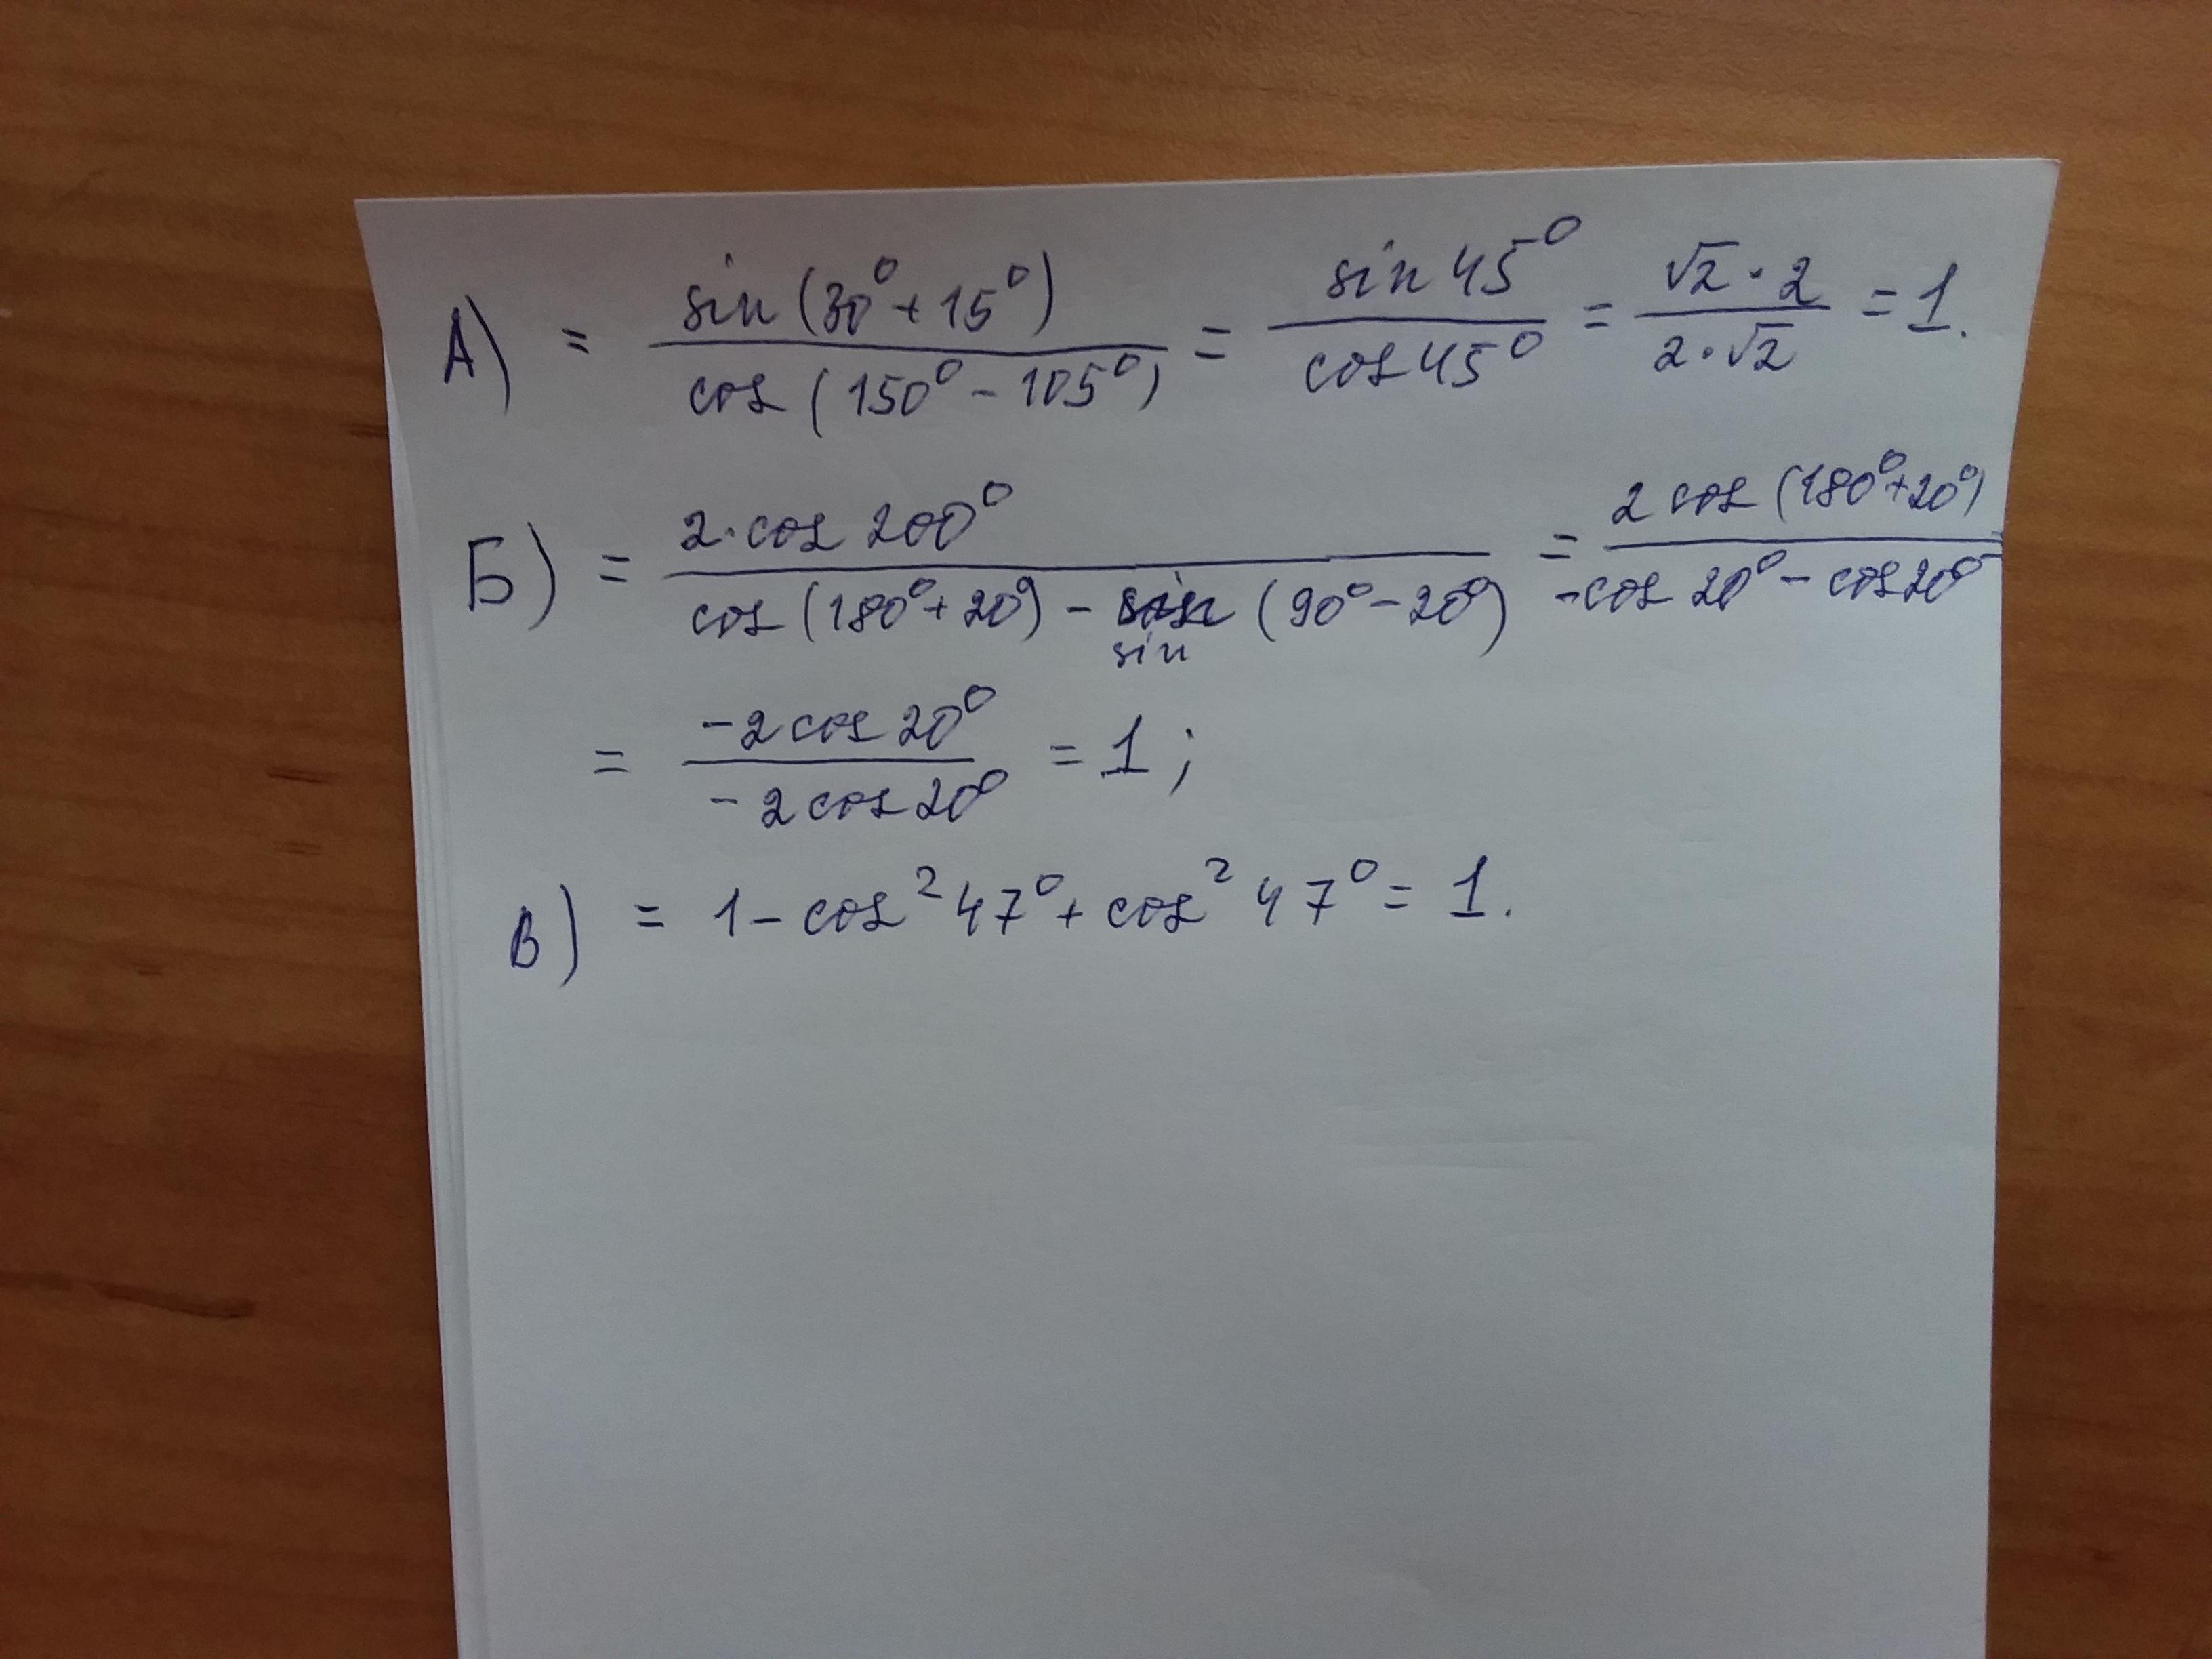 А) = sin(30°+15°) / cos(150°-105°) = sin45° / cos45° = √2·2 / 2·√2 = 1.
Б) = 2·cos 200° / cos(180°+20°) - sin (90°-20°) = 2 cos (180°+20°) / -cos 20° - cos20°
sin
= -2cos 20° / -2cos20° = 1;
В) = 1-cos²47°+cos²47° = 1.